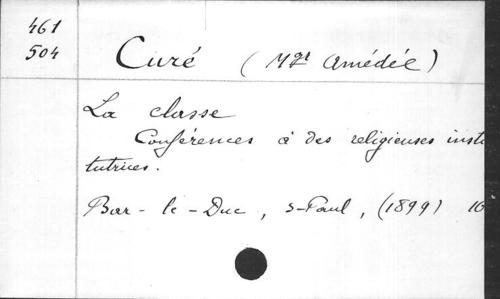 461
504
Curé (Mgr Amédée)
La classe
Conférences à des religieuses insti
tutrices.
Bar-le-Duc, S-Paul, (1899) 16